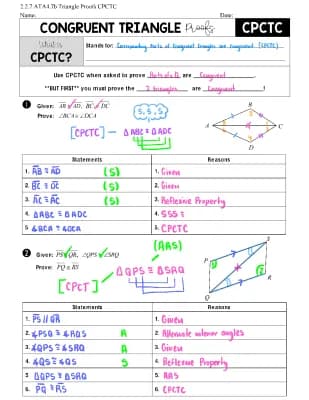 2.2.7 ATA4.7b Triangle Proofs CPCTC
Name: Date:
CONGRUENT TRIANGLE Proofs CPCTC
What is CPCTC?
Stands for: Corresponding Parts of Congruent triangles are Congruent (CPCTC)
Use CPCTC when asked to prove Parts of Δ are Congruent
**BUT FIRST** you must prove the 2 triangles are Congruent!
1 Given: AB ≅ AD, BC ≅ DC
Prove: ∠BCA ≅ ∠DCA
S, S, S
[CPCTC] — Δ ABC ≅ Δ ADC
B
A
C
D
Statements Reasons
1. AB ≅ AD (S) 1. Given
2. BC ≅ DC (S) 2. Given
3. AC ≅ AC (S) 3. Reflexive Property
4. ΔABC ≅ ΔADC 4. SSS ≅
5. ∡BCA ≅ ∡DCA 5. CPCTC
(AAS)
2 Given: PS ∥ QR, ∠QPS ≅ ∠SRQ
Prove: PQ ≅ RS
ΔQPS ≅ ΔSRQ
[CPCT]
S
P
R
Q
Statements Reasons
1. PS ∥ QR 1. Given
2. ∡PSQ ≅ ∡RQS A 2. Alternate interior angles
3. ∡QPS ≅ ∡SRQ A 3. Given
4. QS ≅ QS S 4. Reflexive Property
5. ΔQPS ≅ ΔSRQ 5. AAS
6. PQ ≅ RS 6. CPCTC